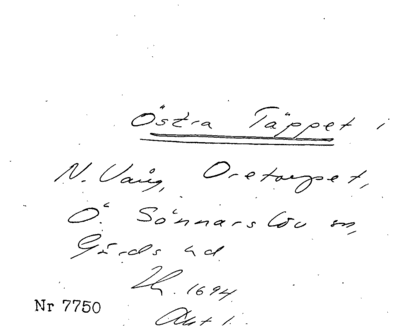 Östra Täppet i
N. Vång, Oretorpet,
Ö. Sönnarslöv sn,
Gärds hd
Th. 1694
Akt 1.
Nr 7750